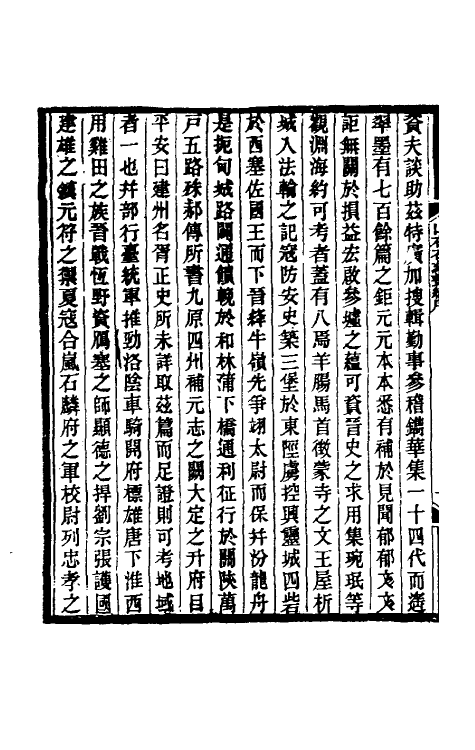 資夫談助茲特廣加搜輯勤事參稽鐫華集一十四代而遙
翠墨有七百餘篇之鉅元元本本悉有補於見聞郁郁文文
詎無關於損益宏啟參墟之蘊可資晉史之求用集琬珉等
觀淵海約可考者蓋有八焉羊腸馬首徵蒙寺之文王屋析
城入法輪之記寇防安史築三堡於東陘虜控興靈城四砦
於西塞佐國王而下晉絳牛嶺先爭翊太尉而保幷汾龍舟
是扼甸城路闢通饋輓於和林蒲下橋通利征行於關陝萬
戸五路殊郝傳所書九原四州補元志之闕大定之升府目
平安曰建州名胥正史所未詳取茲篇而足證則可考地域
者一也幷部行臺統軍推勁洛陰車騎開府標雄唐下淮西
用雞田之族晉戰恆野資鴈塞之師顯德之捍劉宗張護國
建雄之鎮元符之禦夏寇合嵐石麟府之軍校尉列忠孝之